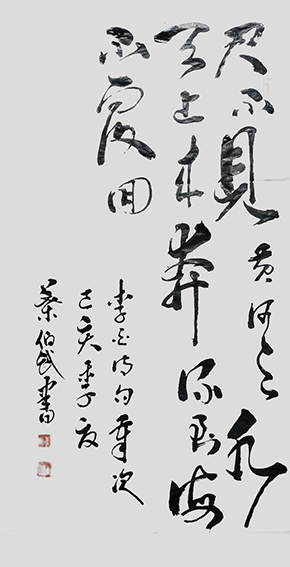 君不見黄河之水
天上来奔流到海
不復回
李白詩句歲次
己亥季夏
蔡伯武書